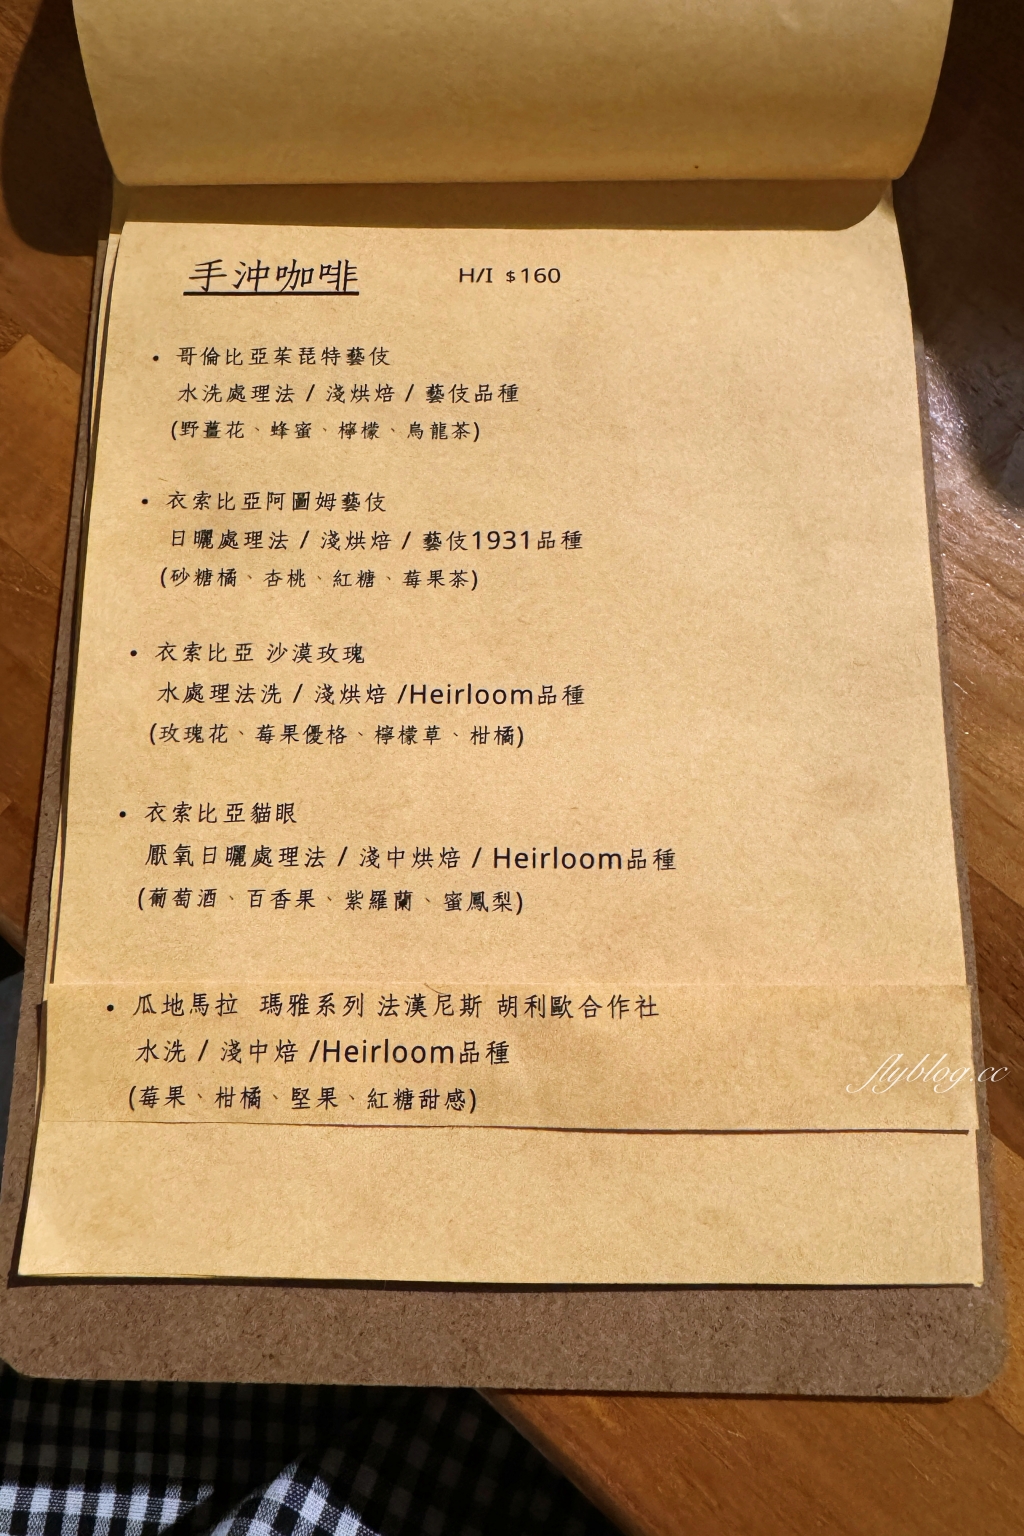 手沖咖啡 H/I $160
• 哥倫比亞茱琵特藝伎
水洗處理法 / 淺烘焙 / 藝伎品種
(野薑花、蜂蜜、檸檬、烏龍茶)
• 衣索比亞阿圖姆藝伎
日曬處理法 / 淺烘焙 / 藝伎1931品種
(砂糖橘、杏桃、紅糖、莓果茶)
• 衣索比亞 沙漠玫瑰
水處理法洗 / 淺烘焙 /Heirloom品種
(玫瑰花、莓果優格、檸檬草、柑橘)
• 衣索比亞貓眼
厭氧日曬處理法 / 淺中烘焙 / Heirloom品種
(葡萄酒、百香果、紫羅蘭、蜜鳳梨)
• 瓜地馬拉 瑪雅系列 法漢尼斯 胡利歐合作社
水洗 / 淺中焙 /Heirloom品種
(莓果、柑橘、堅果、紅糖甜感)
flyblog.cc